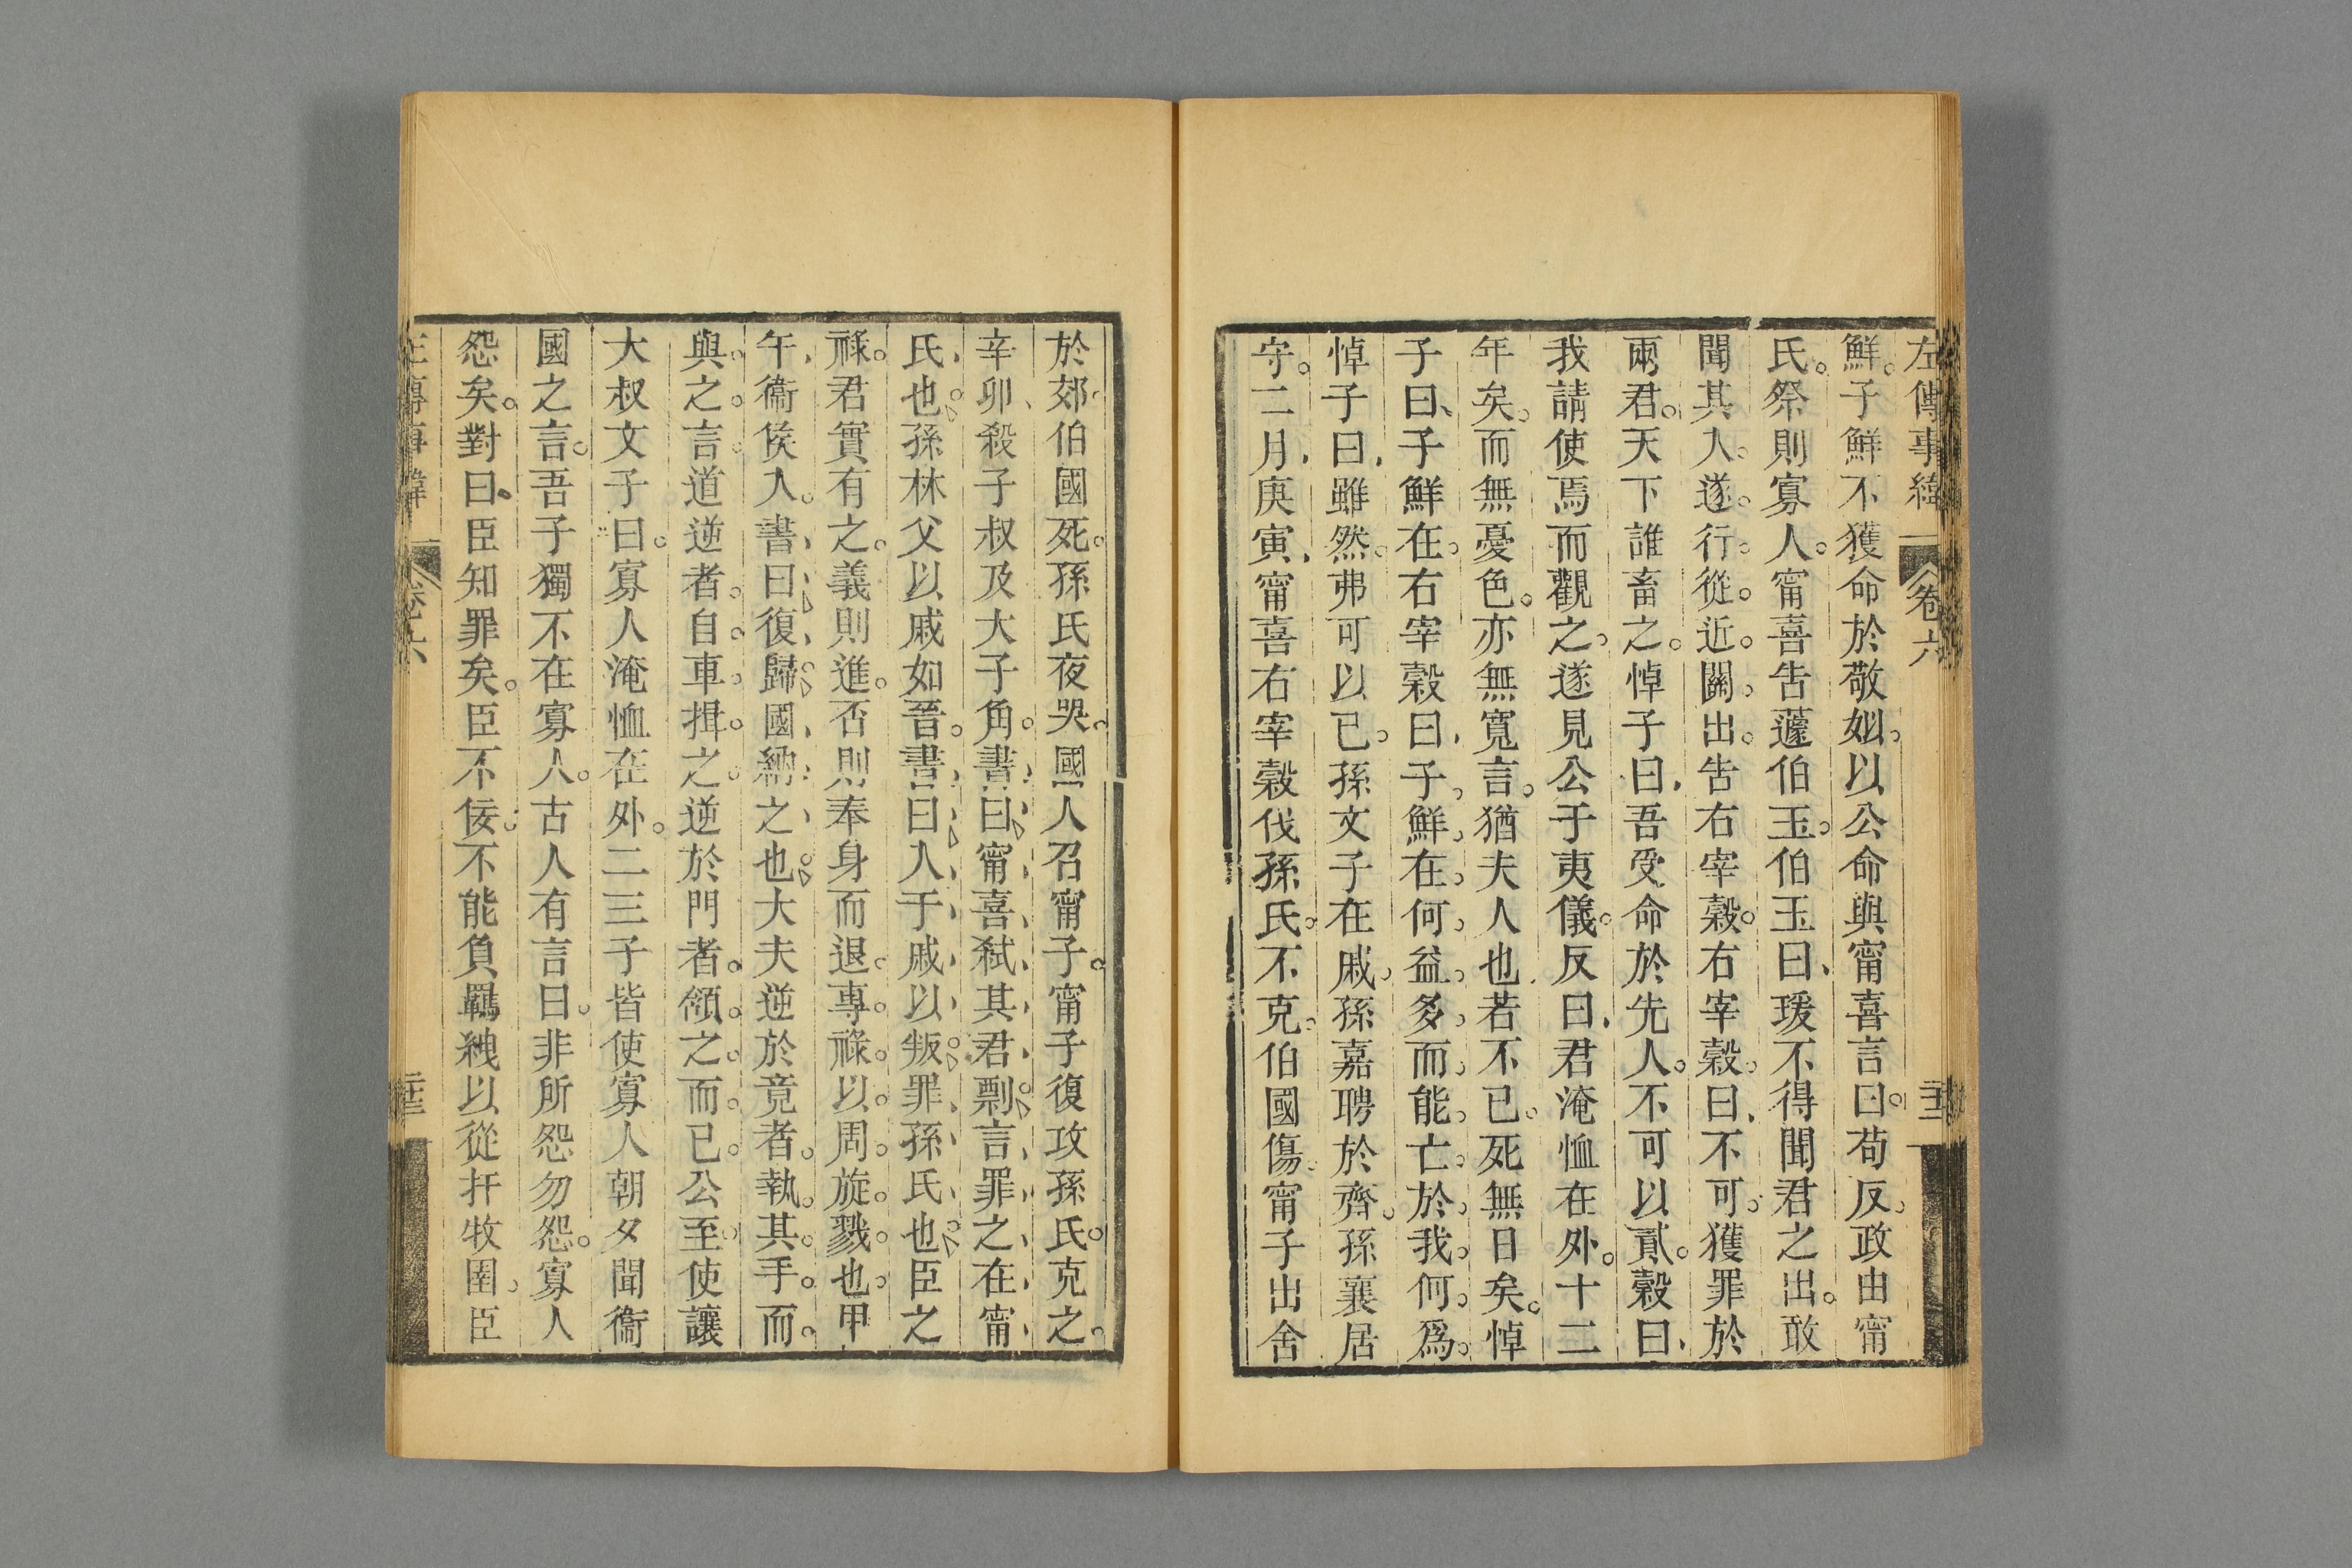 左傳事緯 卷六
鮮子鮮不獲命於敬姒以公命與甯喜言曰苟反政由甯
氏祭則寡人甯喜告蘧伯玉伯玉曰瑗不得聞君之出敢
聞其入遂行從近關出告右宰穀右宰穀曰不可獲罪於
兩君天下誰畜之悼子曰吾受命於先人不可以貳穀曰
我請使焉而觀之遂見公于夷儀反曰君淹恤在外十二
年矣而無憂色亦無寬言猶夫人也若不已死無日矣悼
子曰子鮮在右宰穀曰子鮮在何益多而能亡於我何爲
悼子曰雖然弗可以已孫文子在戚孫嘉聘於齊孫襄居
守二月庚寅甯喜右宰穀伐孫氏不克伯國傷甯子出舍
於郊伯國死孫氏夜哭國人召甯子甯子復攻孫氏克之
辛卯殺子叔及大子角書曰甯喜弒其君剽言罪之在甯
氏也孫林父以戚如晉書曰入于戚以叛罪孫氏也臣之
祿君實有之義則進否則奉身而退專祿以周旋戮也甲
午衞侯入書曰復歸國納之也大夫逆於竟者執其手而
與之言道逆者自車揖之逆於門者頷之而已公至使讓
大叔文子曰寡人淹恤在外二三子皆使寡人朝夕聞衞
國之言吾子獨不在寡人古人有言曰非所怨勿怨寡人
怨矣對曰臣知罪矣臣不佞不能負羈絏以從扞牧圉臣
左傳事緯 卷六